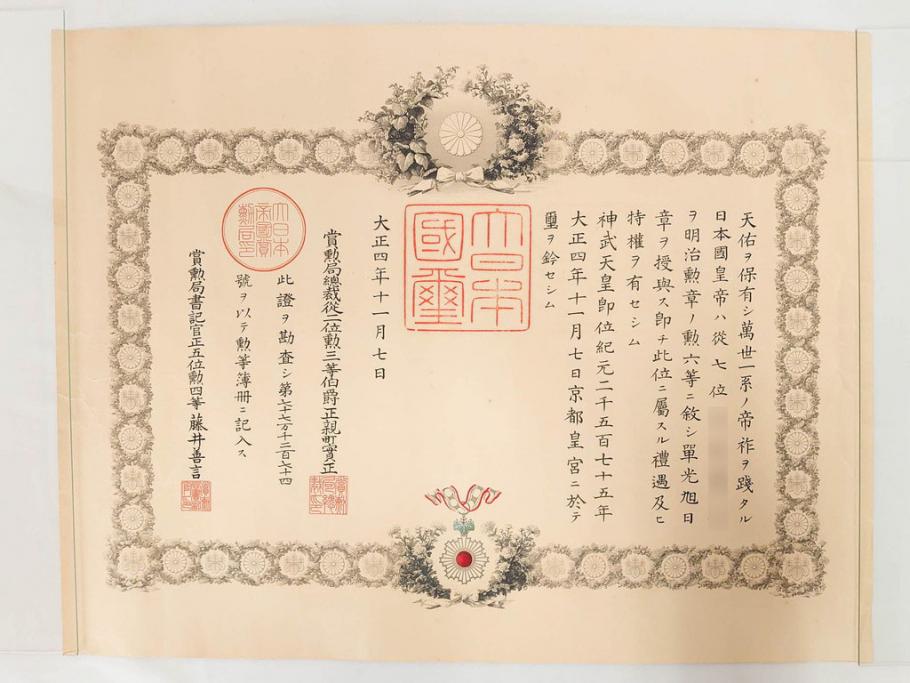 天佑ヲ保有シ萬世一系ノ帝祚ヲ踐タル
日本國皇帝ハ從七位
ヲ明治勲章ノ勲六等ニ敘シ單光旭日
章ヲ授與ス即チ此位ニ屬スル禮遇及ヒ
特權ヲ有セシム
神武天皇即位紀元二千五百七十五年
大正四年十一月七日京都皇宮ニ於テ
璽ヲ鈐セシム
大日本國璽
大正四年十一月七日
賞勲局總裁從二位勲三等伯爵正親町實正
此證ヲ勘査シ第六十七万千二百七十四
號ヲ以テ勲等簿冊ニ記入ス
大日本帝國賞勲局印
賞勲局書記官正五位勲四等藤井善言